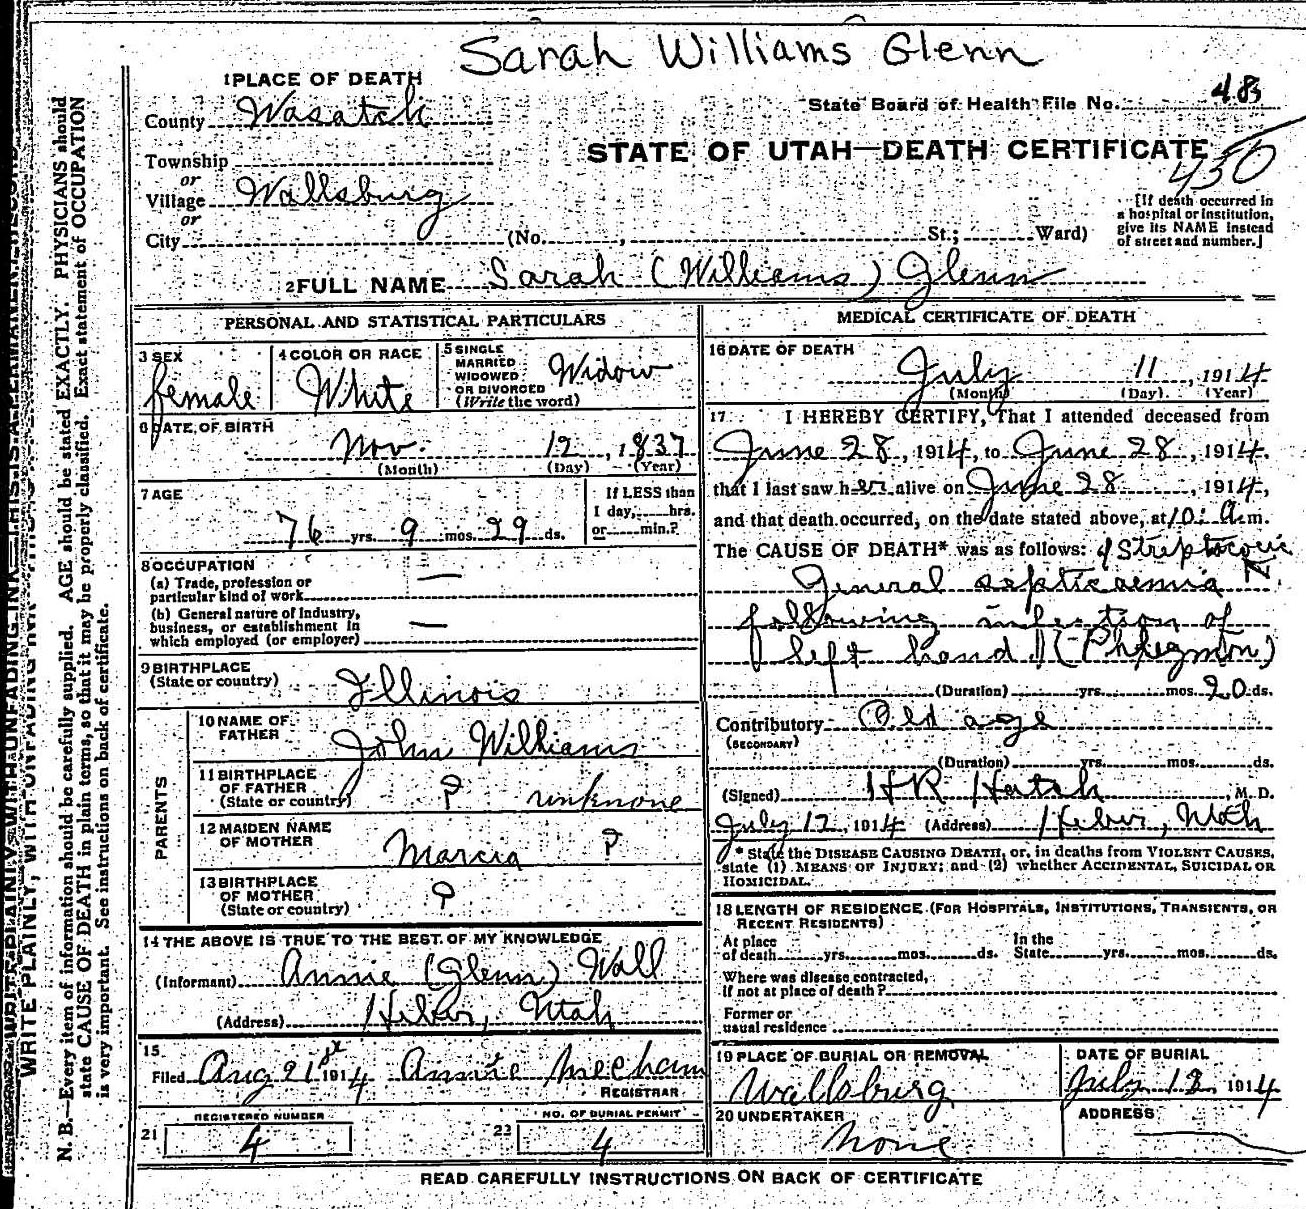 Sarah Williams Glenn
1 PLACE OF DEATH
County Wasatch
State Board of Health File No. 48
Township
or
Village Wallsburg
or
City (No. , St.; Ward)
STATE OF UTAH—DEATH CERTIFICATE
450
[If death occurred in
a hospital or institution,
give its NAME instead
of street and number.]
2 FULL NAME Sarah (Williams) Glenn
PERSONAL AND STATISTICAL PARTICULARS
3 SEX
female
4 COLOR OR RACE
White
5 SINGLE
MARRIED
WIDOWED
OR DIVORCED
(Write the word)
Widow
6 DATE OF BIRTH
Nov. 12, 1837
(Month) (Day) (Year)
7 AGE
76 yrs. 9 mos. 29 ds.
If LESS than
1 day, hrs.
or min.?
8 OCCUPATION
(a) Trade, profession or
particular kind of work —
(b) General nature of Industry,
business, or establishment in
which employed (or employer) —
9 BIRTHPLACE
(State or country) Illinois
PARENTS
10 NAME OF
FATHER John Williams
11 BIRTHPLACE
OF FATHER
(State or country) ? unknone
12 MAIDEN NAME
OF MOTHER Marcia ?
13 BIRTHPLACE
OF MOTHER
(State or country) ?
14 THE ABOVE IS TRUE TO THE BEST OF MY KNOWLEDGE
(Informant) Annie (Glenn) Wall
(Address) Heber, Utah
15
Filed Aug 21st 1914 Annie Mecham
REGISTRAR
REGISTERED NUMBER
21 4
NO. OF BURIAL PERMIT
23 4
MEDICAL CERTIFICATE OF DEATH
16 DATE OF DEATH
July 11, 1914
(Month) (Day) (Year)
17 I HEREBY CERTIFY, That I attended deceased from
June 28, 1914, to June 28, 1914,
that I last saw her alive on June 28, 1914,
and that death occurred, on the date stated above, at 10: a.m.
The CAUSE OF DEATH* was as follows: Streptococcic
General septicaemia
following infection of
left hand (Phlegmon)
(Duration) yrs. mos. 20 ds.
Contributory Old age
(SECONDARY)
(Duration) yrs. mos. ds.
(Signed) HR Hatch, M. D.
July 12, 1914 (Address) Heber, Utah
* State the DISEASE CAUSING DEATH, or, in deaths from VIOLENT CAUSES,
state (1) MEANS OF INJURY; and (2) whether ACCIDENTAL, SUICIDAL OR
HOMICIDAL.
18 LENGTH OF RESIDENCE (FOR HOSPITALS, INSTITUTIONS, TRANSIENTS, OR
RECENT RESIDENTS)
At place
of death yrs. mos. ds.
In the
State yrs. mos. ds.
Where was disease contracted,
If not at place of death?
Former or
usual residence
19 PLACE OF BURIAL OR REMOVAL
Wallsburg
DATE OF BURIAL
July 13 1914
20 UNDERTAKER
none
ADDRESS
READ CAREFULLY INSTRUCTIONS ON BACK OF CERTIFICATE
WRITE PLAINLY, WITH UNFADING INK
N. B.—Every item of information should be carefully supplied. AGE should be stated EXACTLY. PHYSICIANS should
state CAUSE OF DEATH in plain terms, so that it may be properly classified. Exact statement of OCCUPATION
is very important. See instructions on back of certificate.